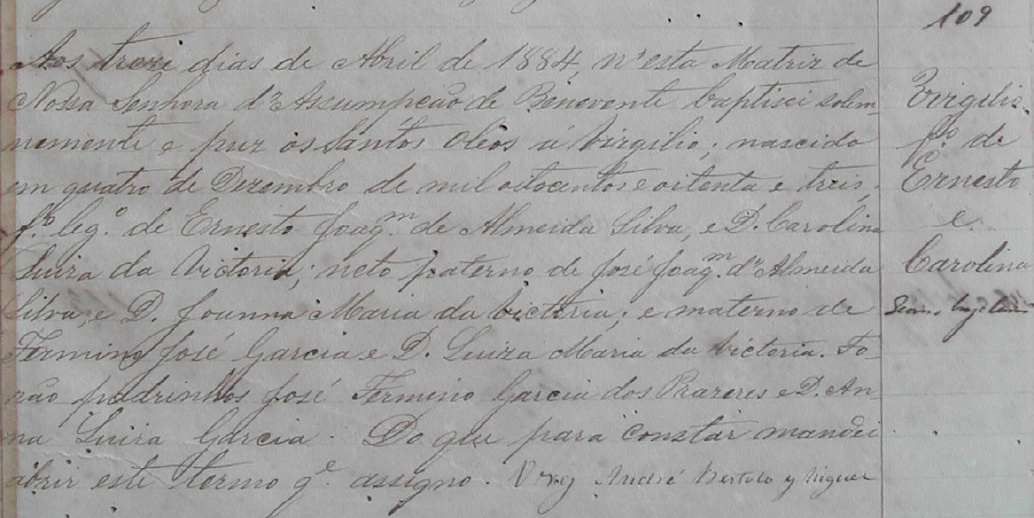 109
Aos treze dias de Abril de 1884, n'esta Matriz de
Nossa Senhora d'Assumpção de Benevente baptisei solem
nemente e puz os Santos Oleos á Virgilio; nascido
em quatro de Dezembro de mil oitocentos e oitenta e tres,
fº. legº. de Ernesto Joaqm. de Almeida Silva, e D. Carolina
Luiza da Victoria; neto paterno de José Joaqm. d'Almeida
Silva, e D. Joanna Maria da Victoria; e materno de
Fermino José Garcia e D. Luiza Maria da Victoria. Fo-
rão padrinhos José Fermino Garcia dos Prazeres e D. An
na Luiza Garcia. Do que para constar mandei
abrir este termo qe assigno. Vrog André
Virgilio
fº. de
Ernesto
e
Carolina